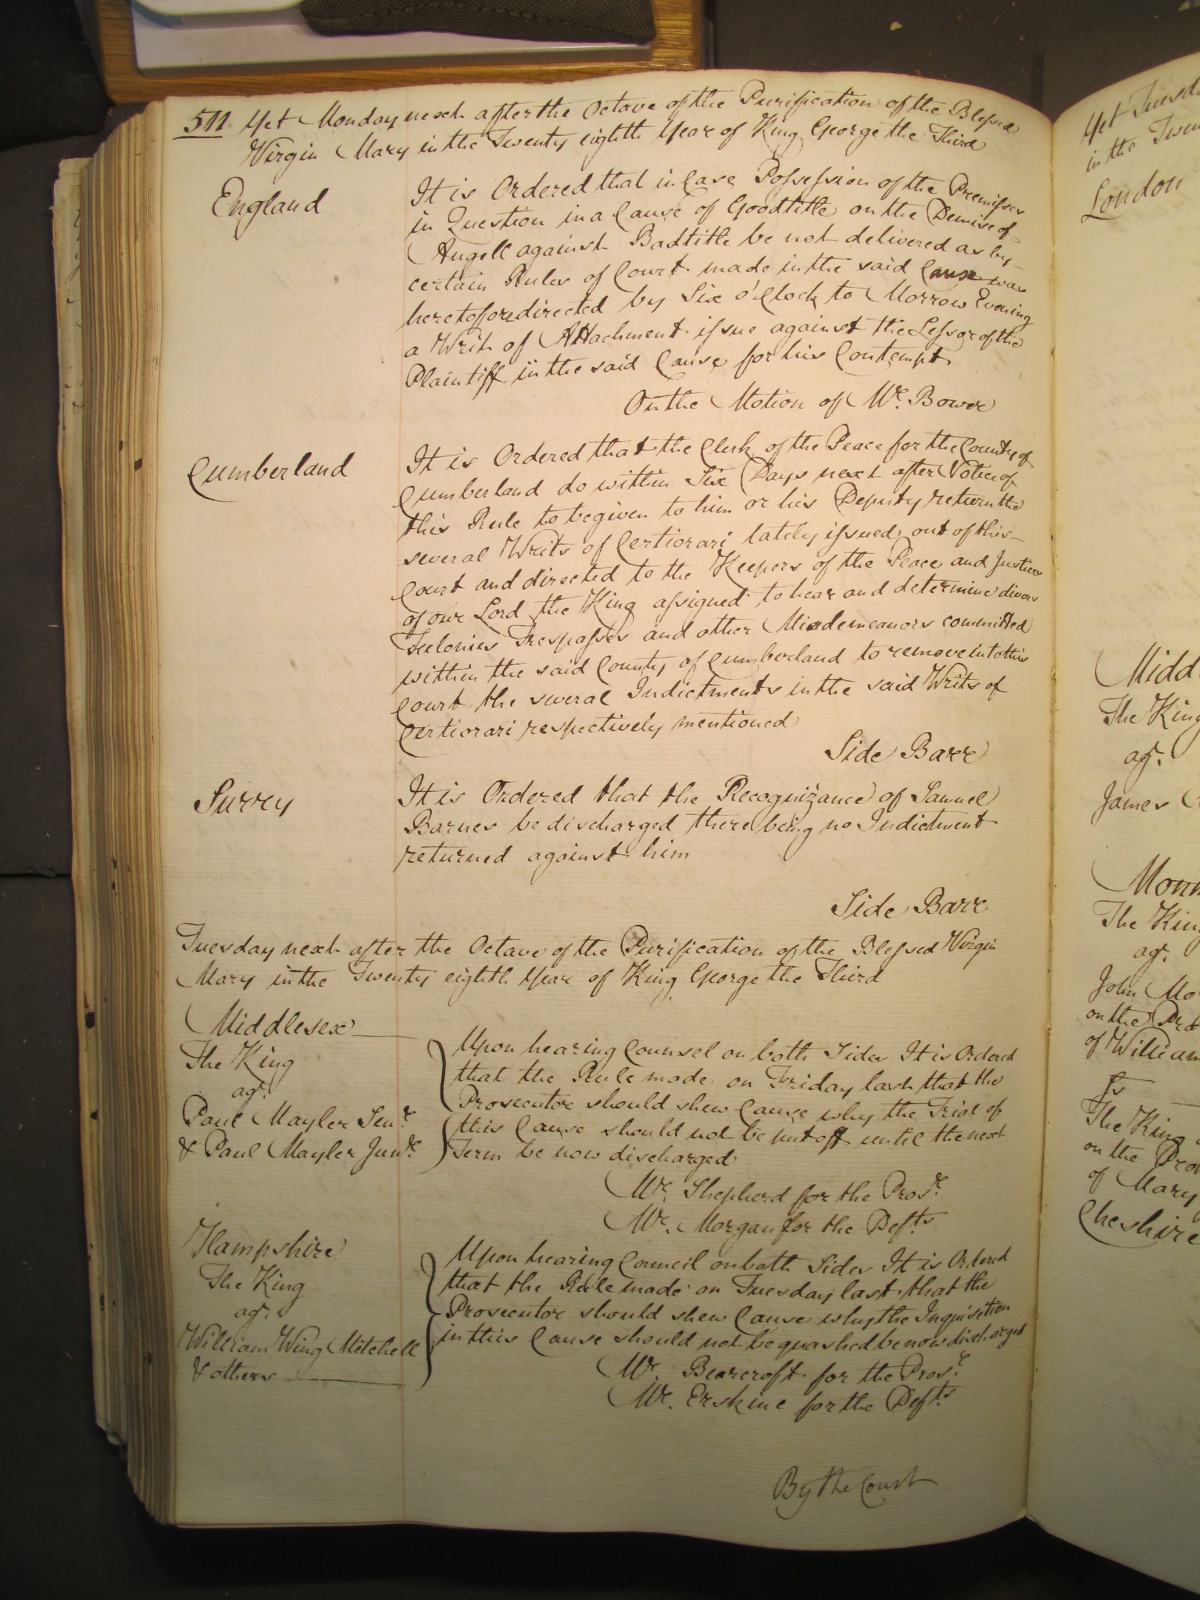 511 Yet Monday next after the Octave of the Purification of the Blessed
Virgin Mary in the Twenty eighth Year of King George the Third
England
It is Ordered that in Case Possession of the Premisses
in Question in a Cause of Goodtitle on the Demise of
Angell against Badtitle be not delivered as by
certain Rules of Court made in the said Cause was
heretofore directed by Six o'Clock to Morrow Evening
a Writ of Attachment issue against the Lessor of the
Plaintiff in the said Cause for his Contempt
On the Motion of Mr. Bower
Cumberland
It is Ordered that the Clerk of the Peace for the County of
Cumberland do within Six Days next after Notice of
this Rule to be given to him or his Deputy return the
several Writs of Certiorari lately issued out of this
Court and directed to the Keepers of the Peace and Justices
of our Lord the King assigned to hear and determine divers
Felonies Trespasses and other Misdemeanors committed
within the said County of Cumberland to remove into this
Court the several Indictments in the said Writs of
Certiorari respectively mentioned
Side Barr
Surrey
It is Ordered that the Recognizance of Samuel
Barnes be discharged there being no Indictment
returned against him
Side Barr
Tuesday next after the Octave of the Purification of the Blessed Virgin
Mary in the Twenty eighth Year of King George the Third
Middlesex
The King
agt.
Paul Mayler Senr.
& Paul Mayler Junr.
Upon hearing Counsel on both Sides It is Ordered
that the Rule made on Friday last that the
Prosecutor should shew Cause why the Trial of
this Cause should not be put off until the next
Term be now discharged
Mr. Shepherd for the Prosr.
Mr. Morgan for the Defts.
Hampshire
The King
agt.
William Wing Mitchell
& others
Upon hearing Council on both Sides It is Ordered
that the Rule made on Tuesday last that the
Prosecutor should shew Cause why the Inquisition
in this Cause should not be quashed be now discharged
Mr. Bearcroft for the Prosr.
Mr. Erskine for the Defts.
By the Court
Yet Tuesd
in the Twen
London
Midd
The King
agt.
James
Monm
The King
agt.
John Mo
on the
of William
The King
on the Pro
of Mary
Cheshire